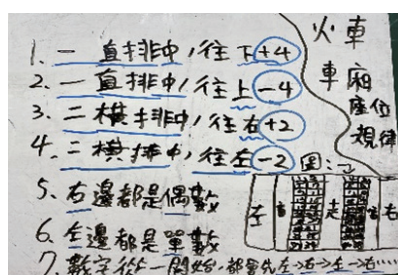 火車
車廂
座位
規律
1. 一直排中,往下+4
2. 一直排中,往上-4
3. 二橫排中,往右+2
4. 二橫排中,往左-2
5. 右邊都是偶數
6. 左邊都是單數
7. 數字從一開始,都是先左→右→左→右……
圖:
左
走
右